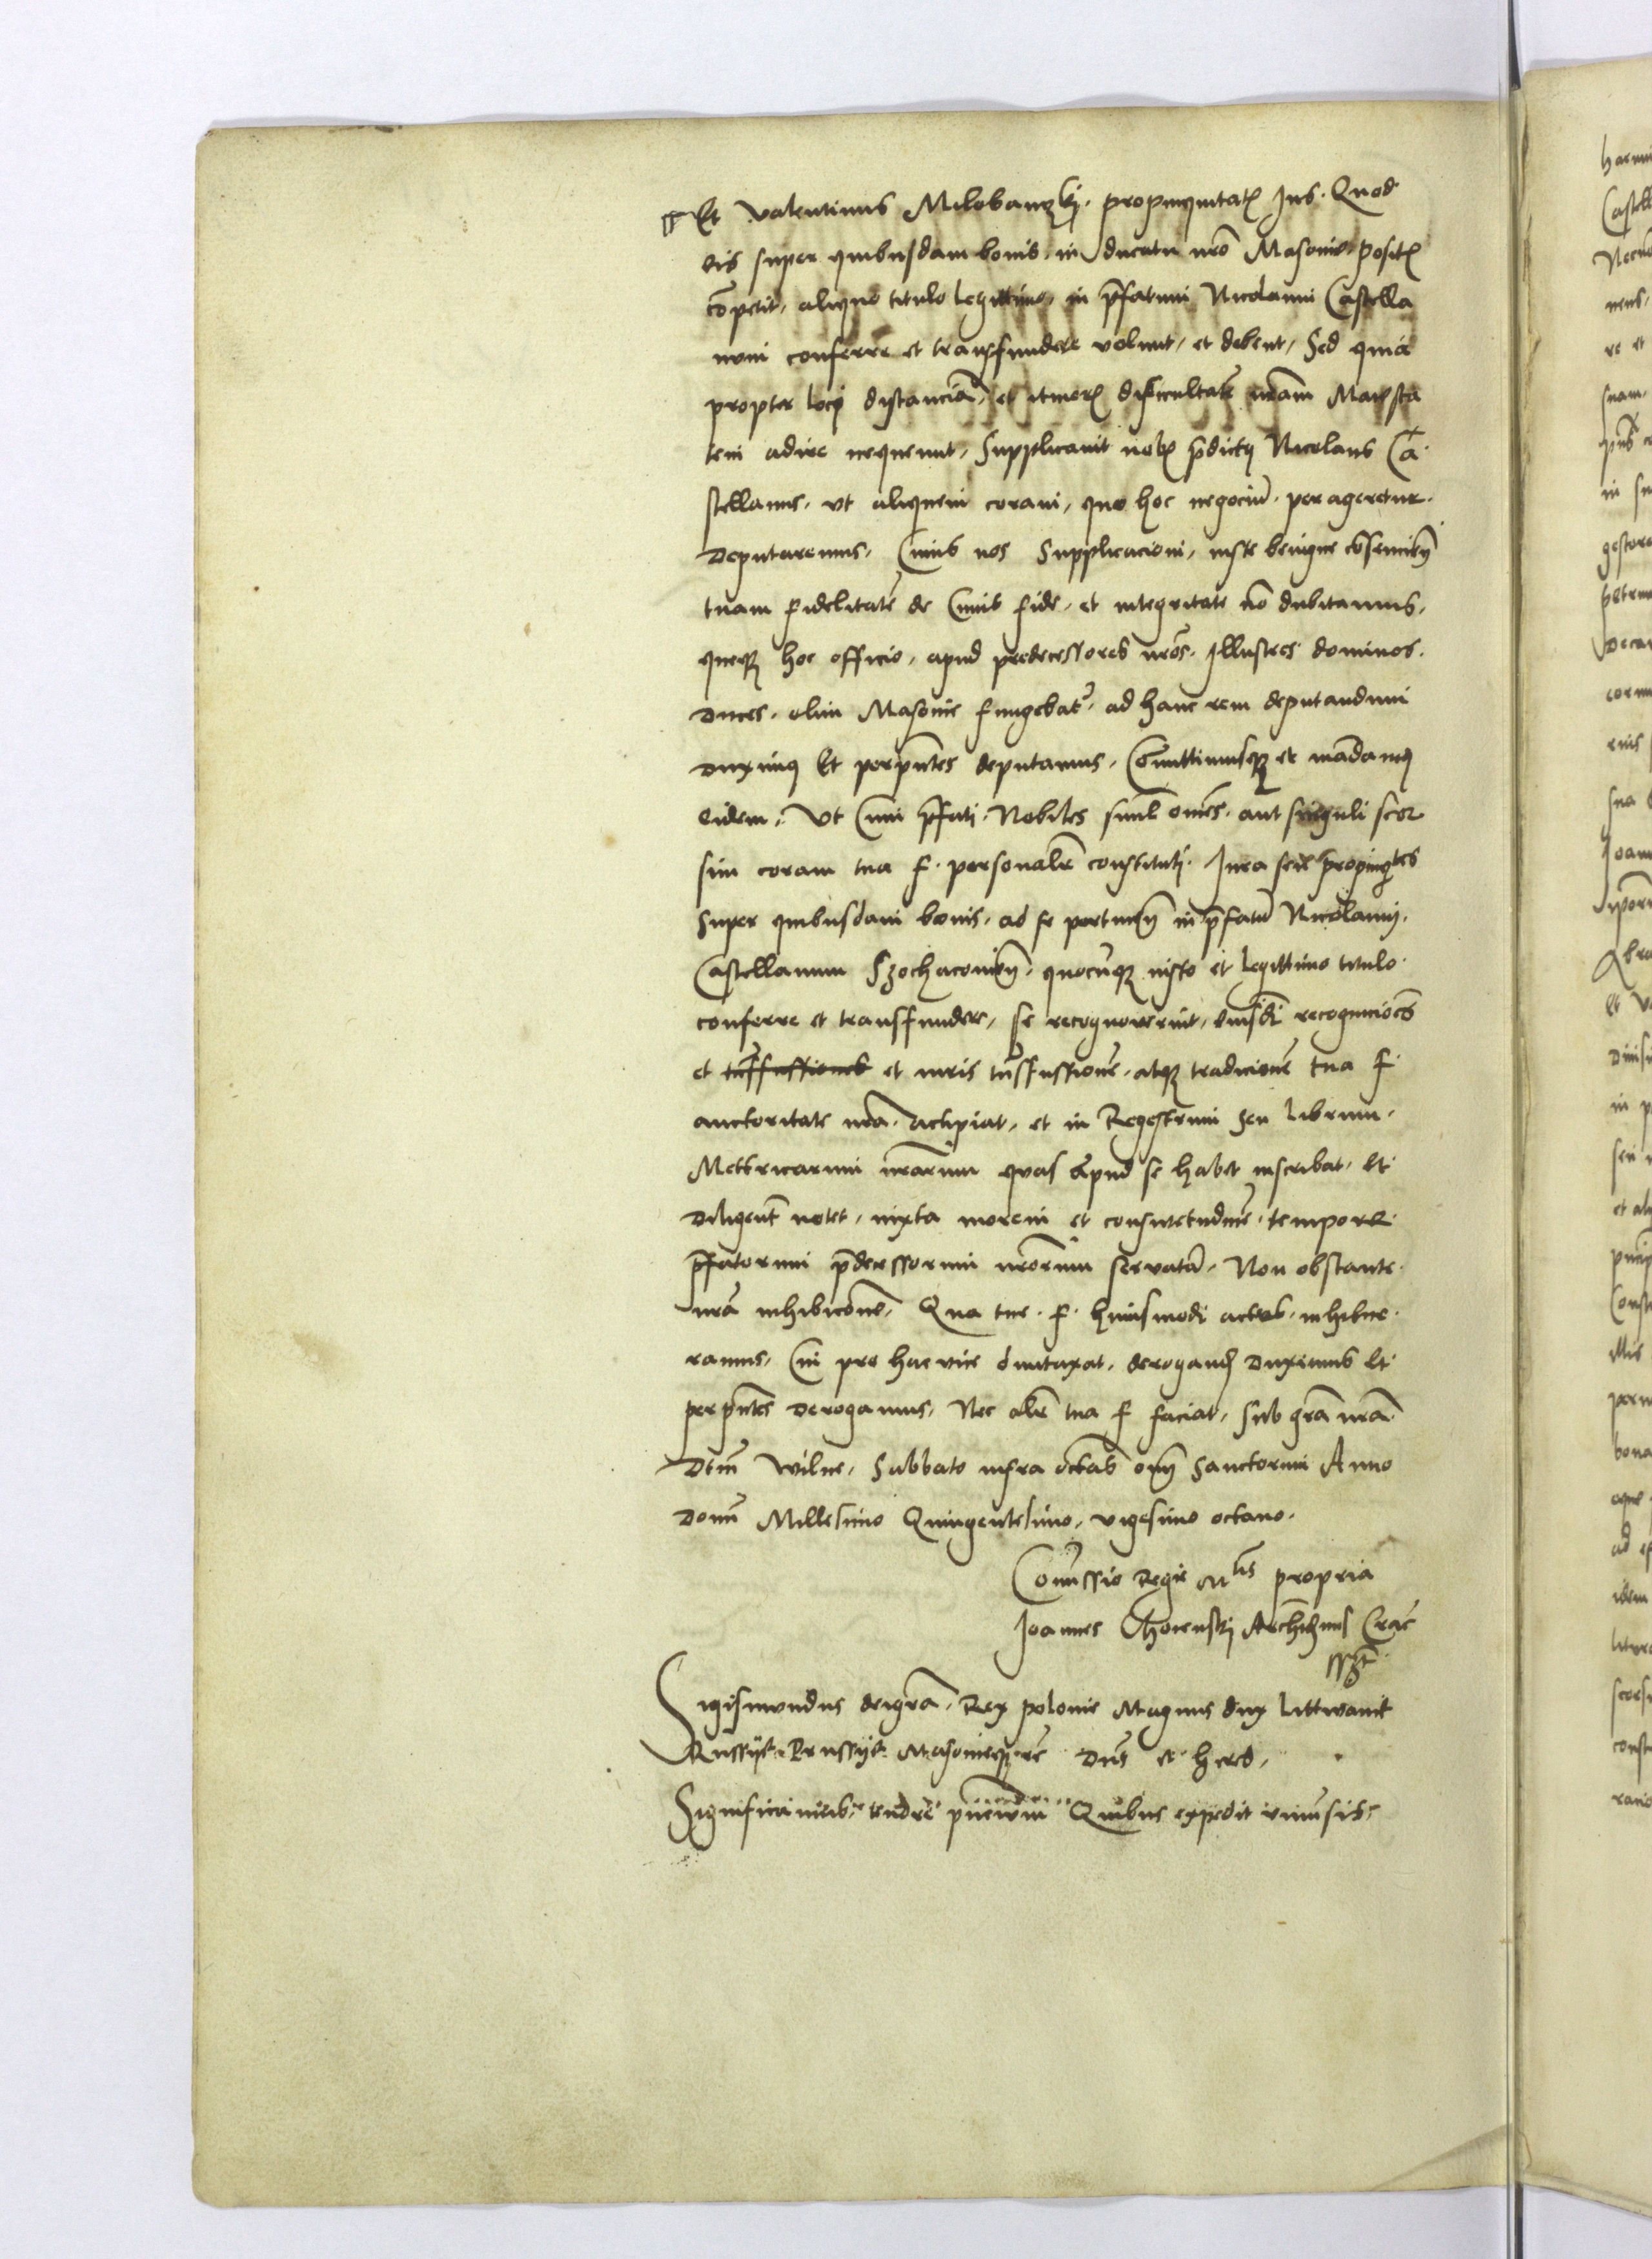 Et Valentinus Milobanzkj. propinquitatꝭ Jus. Quod
eis super quibusdam bonis, in ducatu nr̄o Masovie positꝭ
cōpetit, aliquo titulo legittimo, in p̄fatum Nicolaum Castella
num conferre et transfundere volunt, et debent, Sed quia
propter locj distanciā, et itinerꝭ difficultatē nr̄am Maiesta
tem adire nequeunt, Supplicavit nobꝭ p̄dictꝰ Nicolaus Ca
stellanus, ut aliquem coram, quo hoc negociū perageretur.
Deputaremus, Cuius nos Supplicacioni, iuste benigne
tuam fidelitatē de Cuius fide, et integritate nō dubitamus,
queqꝫ hoc officio, apud predecessores nr̄os. Illustres dominos.
Duces, olim Masovie fungebatr̄, ad hanc rem deputandum
Duximꝰ Et per p̄ntes deputamus, Cōmittimusqꝫ et mādamꝰ
eidem, Ut Cum p̄fati Nobiles simul om̄es. aut singuli seor
sim coram tua f. personalr̄ constituti. Jura sue propinqtes
super quibusdam bonis, ad se pertinen̄ in p̄fatū Nicolaum,
Castellanum Szochaczovien̄. quocūqꝫ iusto et legittimo titulo.
conferre et transfundere, se recognoverint, eiusdi recognicioēs
et tn̄sfussiones et iuris tn̄sfussionē, atqꝫ tradicionē tua f
auctoritate nr̄a. accipiat, et in Regestrum seu librum,
Metricarum nr̄arum quas apud se habet inscribat, et
Diligent̄ notet, iuxta morem et consuetudinē, tempore
p̄fatorum p̄decessorum nr̄orum servatā. Non obstante.
nr̄a inhibicionē, Qua tue. f. huiusmodi actus. inhibue
ramus, Cui pro hac vice dumtaxat, derogand̄ Duximus et
per p̄ntes Derogamus, Nec aliter tua f faciat, sub gr̄a nr̄a
Datm̄ Wilne, Sabbato infra octavas om̄ Sanctorum Anno
Domī Millesimo Quingentesimo, vigesimo octavo.
Com̄issio Regie Mtis propria
Joannes Choienskj Archidnus Crac̄
Sigismundus dei gr̄a, Rex polonie Magnus dux Littwanie
Russie Prussie Masovieqꝫ ec̄ Dn̄s et heres,
Significamus, tenore p̄ncium Quibus expedit univ̄sis,